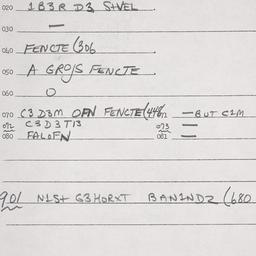 020 1B3R D3 S+VEL.
030 —
040 FENCTE (306.
050 A GROJS FENCTE.
060 O
070 C3 D3M OFN FENCTE (448 071 — BUT C1M
072 C3D3T13 073 —
080 FALOFN 081 —
901 N1S+ G3HORXT BAN1NDZ (680